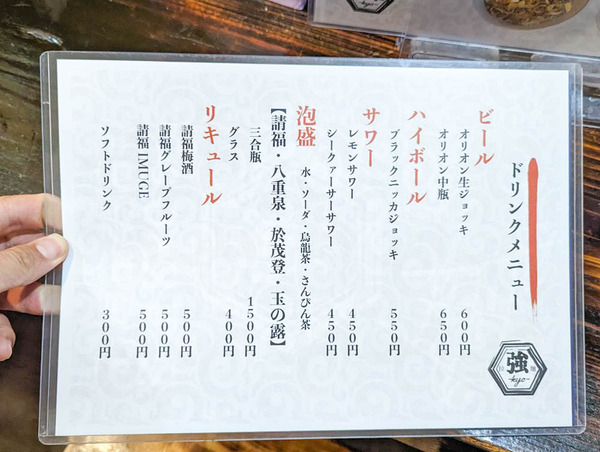 ドリンクメニュー
ビール
オリオン生ジョッキ 600円
オリオン中瓶 650円
ハイボール
ブラックニッカジョッキ 550円
サワー
レモンサワー 450円
シークァーサーサワー 450円
泡盛
水・ソーダ・烏龍茶・さんぴん茶
【請福・八重泉・於茂登・玉の露】
三合瓶 1500円
グラス 400円
リキュール
請福梅酒 500円
請福グレープフルーツ 500円
請福 IMUGE 500円
ソフトドリンク 300円
強
-kyo-